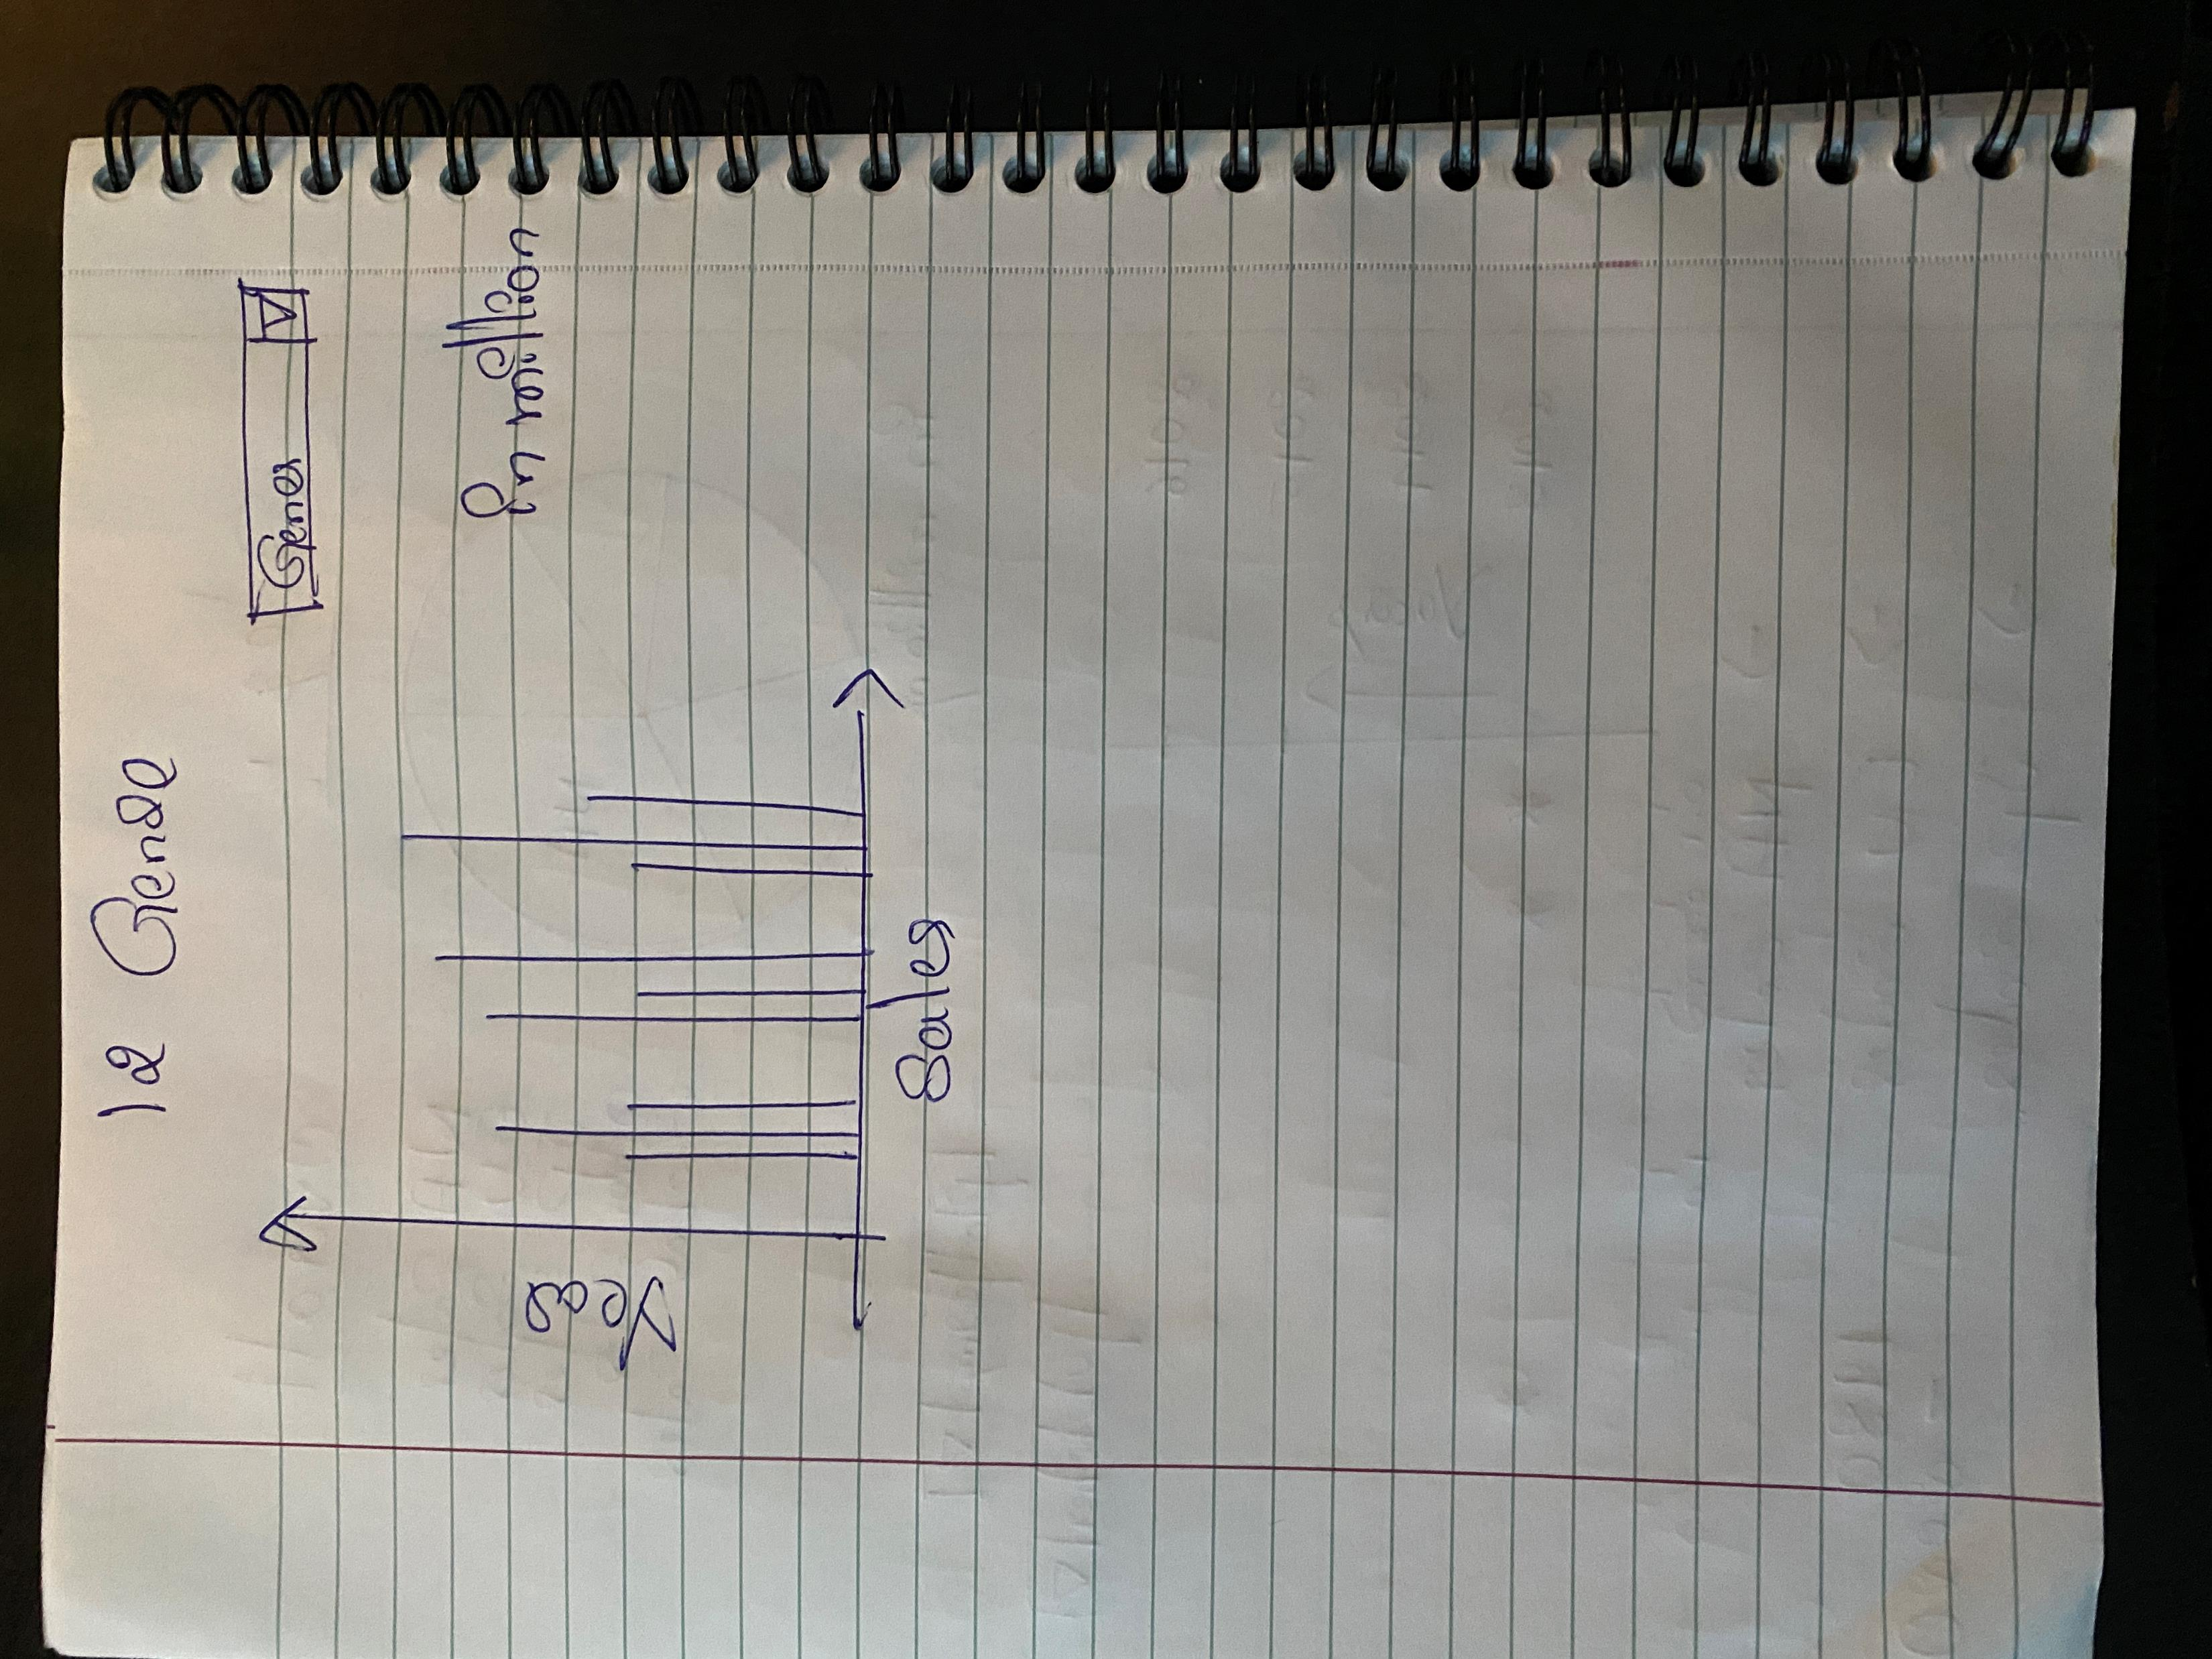 12 Genre
Genres
In million
Year
Sales